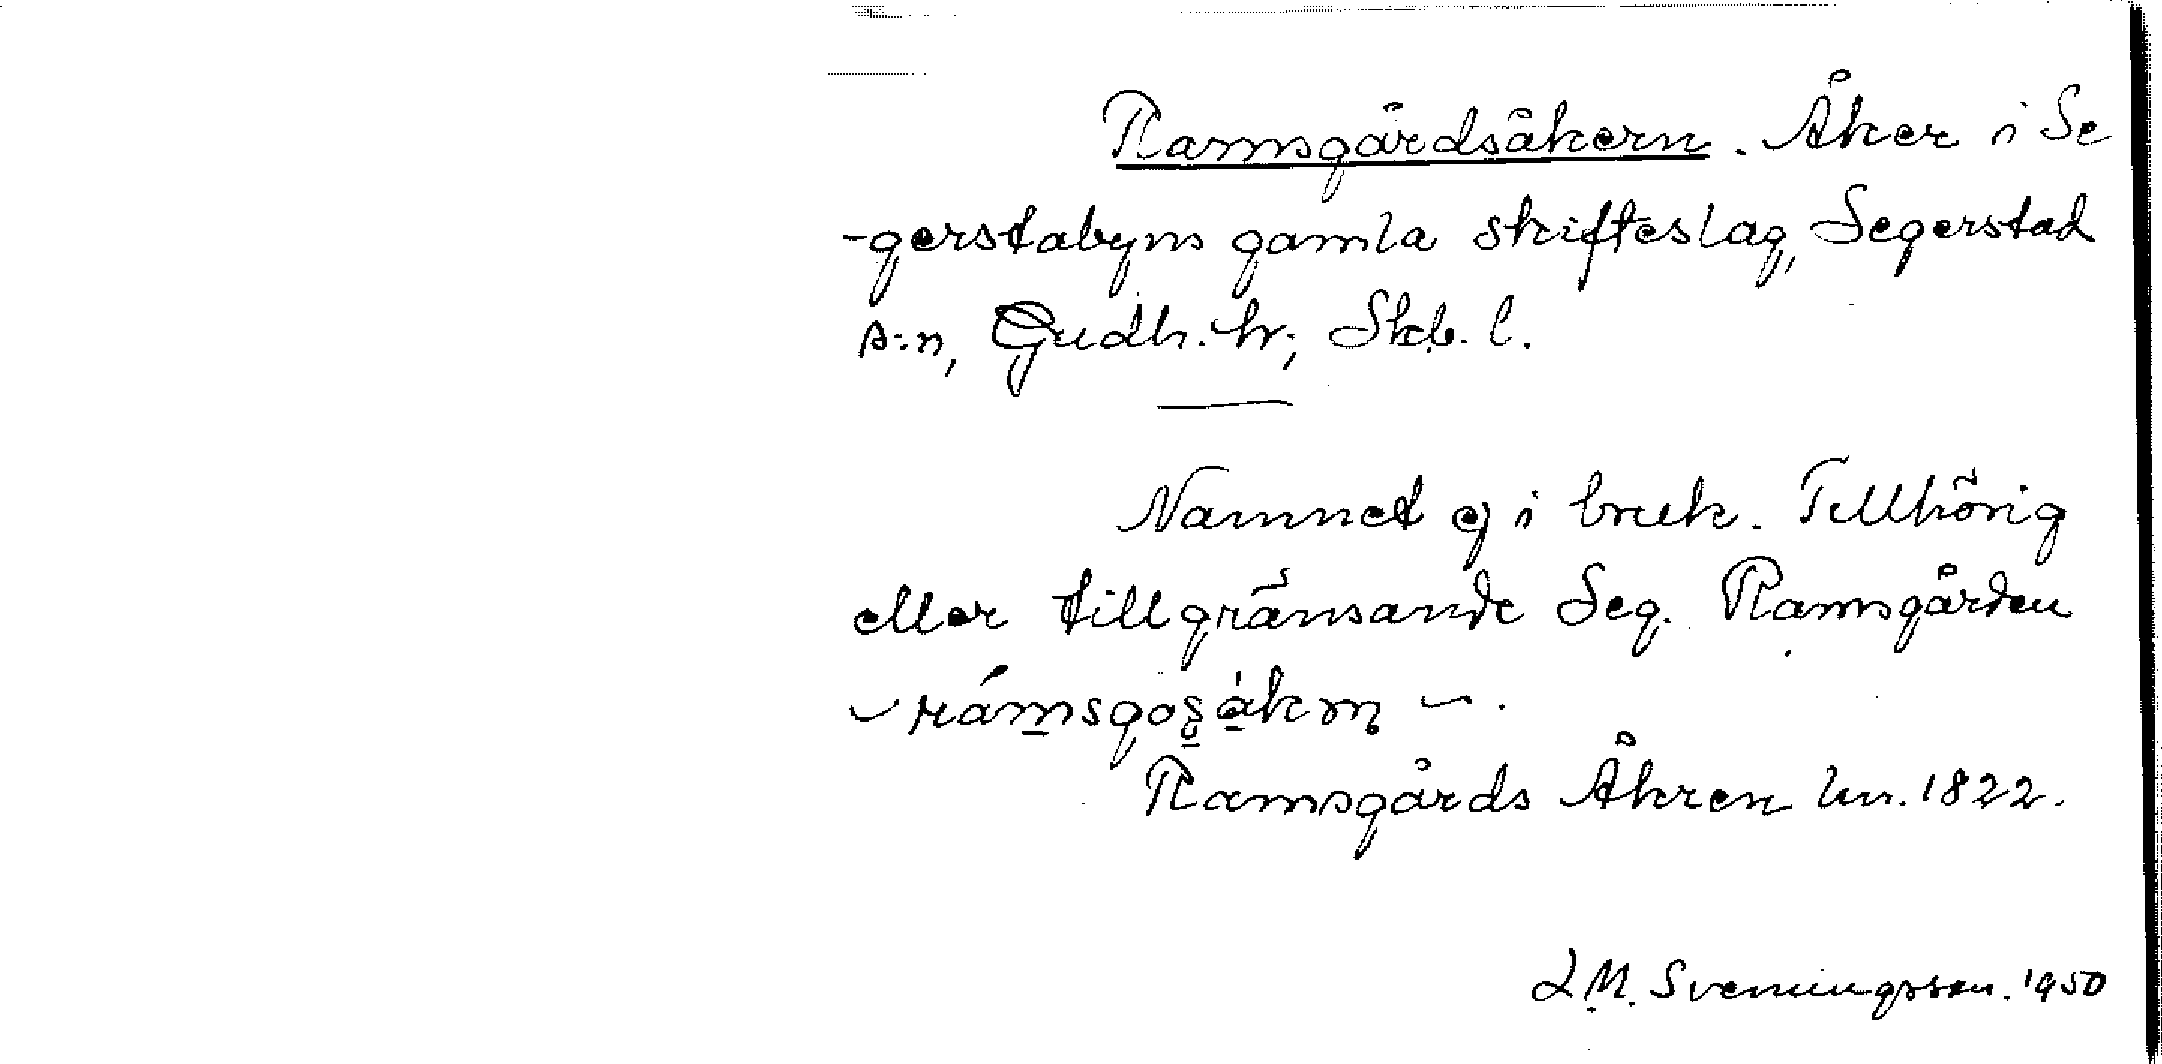 Ramsgårdsåkern. Åker i Se
-gerstabyns gamla skifteslag, Segerstad
s:n, Gudh. hr; Skb. l.
Namnet ej i bruk. Tillhörig
eller tillgränsande Seg. Ramsgården
Ramsgårds Åkren lm. 1822.
L M. Svenningsson. 1950